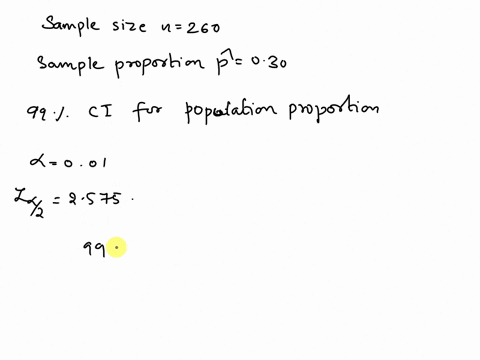 Sample size n = 260
Sample proportion p̂ = 0.30
99 % CI for population proportion
α = 0.01
Zα/2 = 2.575 .
99